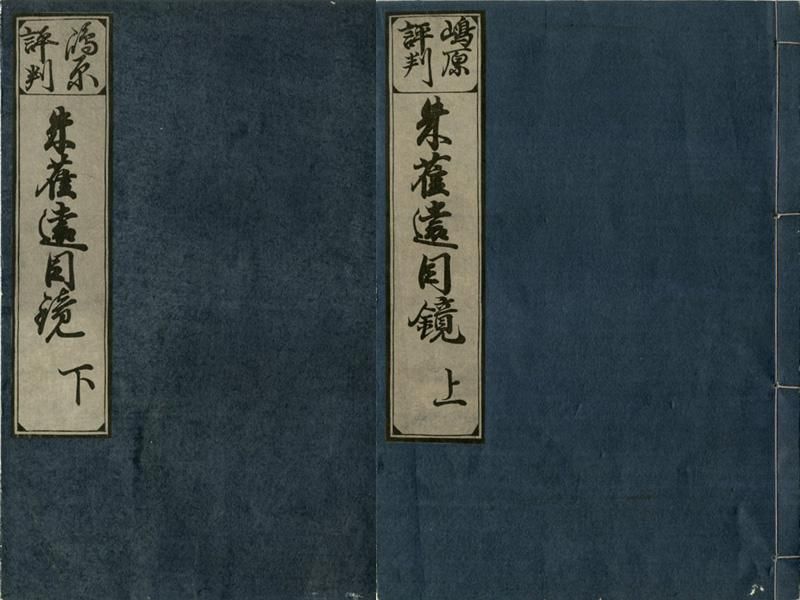 嶋原
評判
朱雀遠目鏡
上
嶋原
評判
朱雀遠目鏡
下